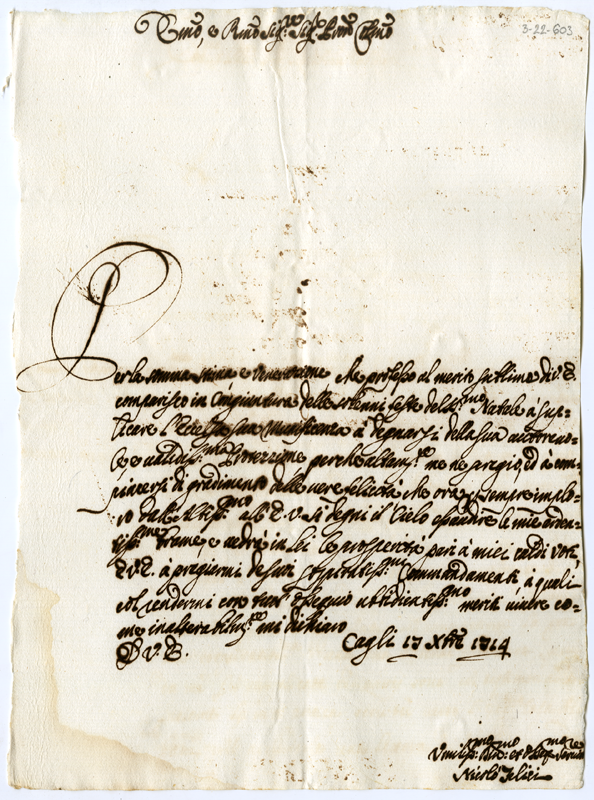 Emo, e Rmo Sigre Sigr Prone Colmo
3-22-603
Per la somma stima e venerazione che professo al merito sublime di V. E.
comparisco in congiuntura delle solenni feste del SSmo Natale à sup-
licare l'eccelsa sua munificenza à degnarsi della sua autorevo-
le e validissma Protezzione perche altamte me ne pregio, ed à com-
piacersi di gradimento delle vere felicità che ora, e sempre implo-
ro dall'Altissmo all'E. V. Si degni il Cielo esaudire le mie arden-
tissme brame, e vedrò in lei le prosperità pari à miei caldi voti,
e V. E. à pregiarmi de suoi stimatissmi Commandamenti, à quali
col rendermi con tutto ossequio ubbidientissmo meriti vivere co-
me inalterabilmte mi dichiaro
D. V. E.
Cagli 17 Xbre 1714
Umilissmo Divmo et Obligmo Servre
Nicolò Felici